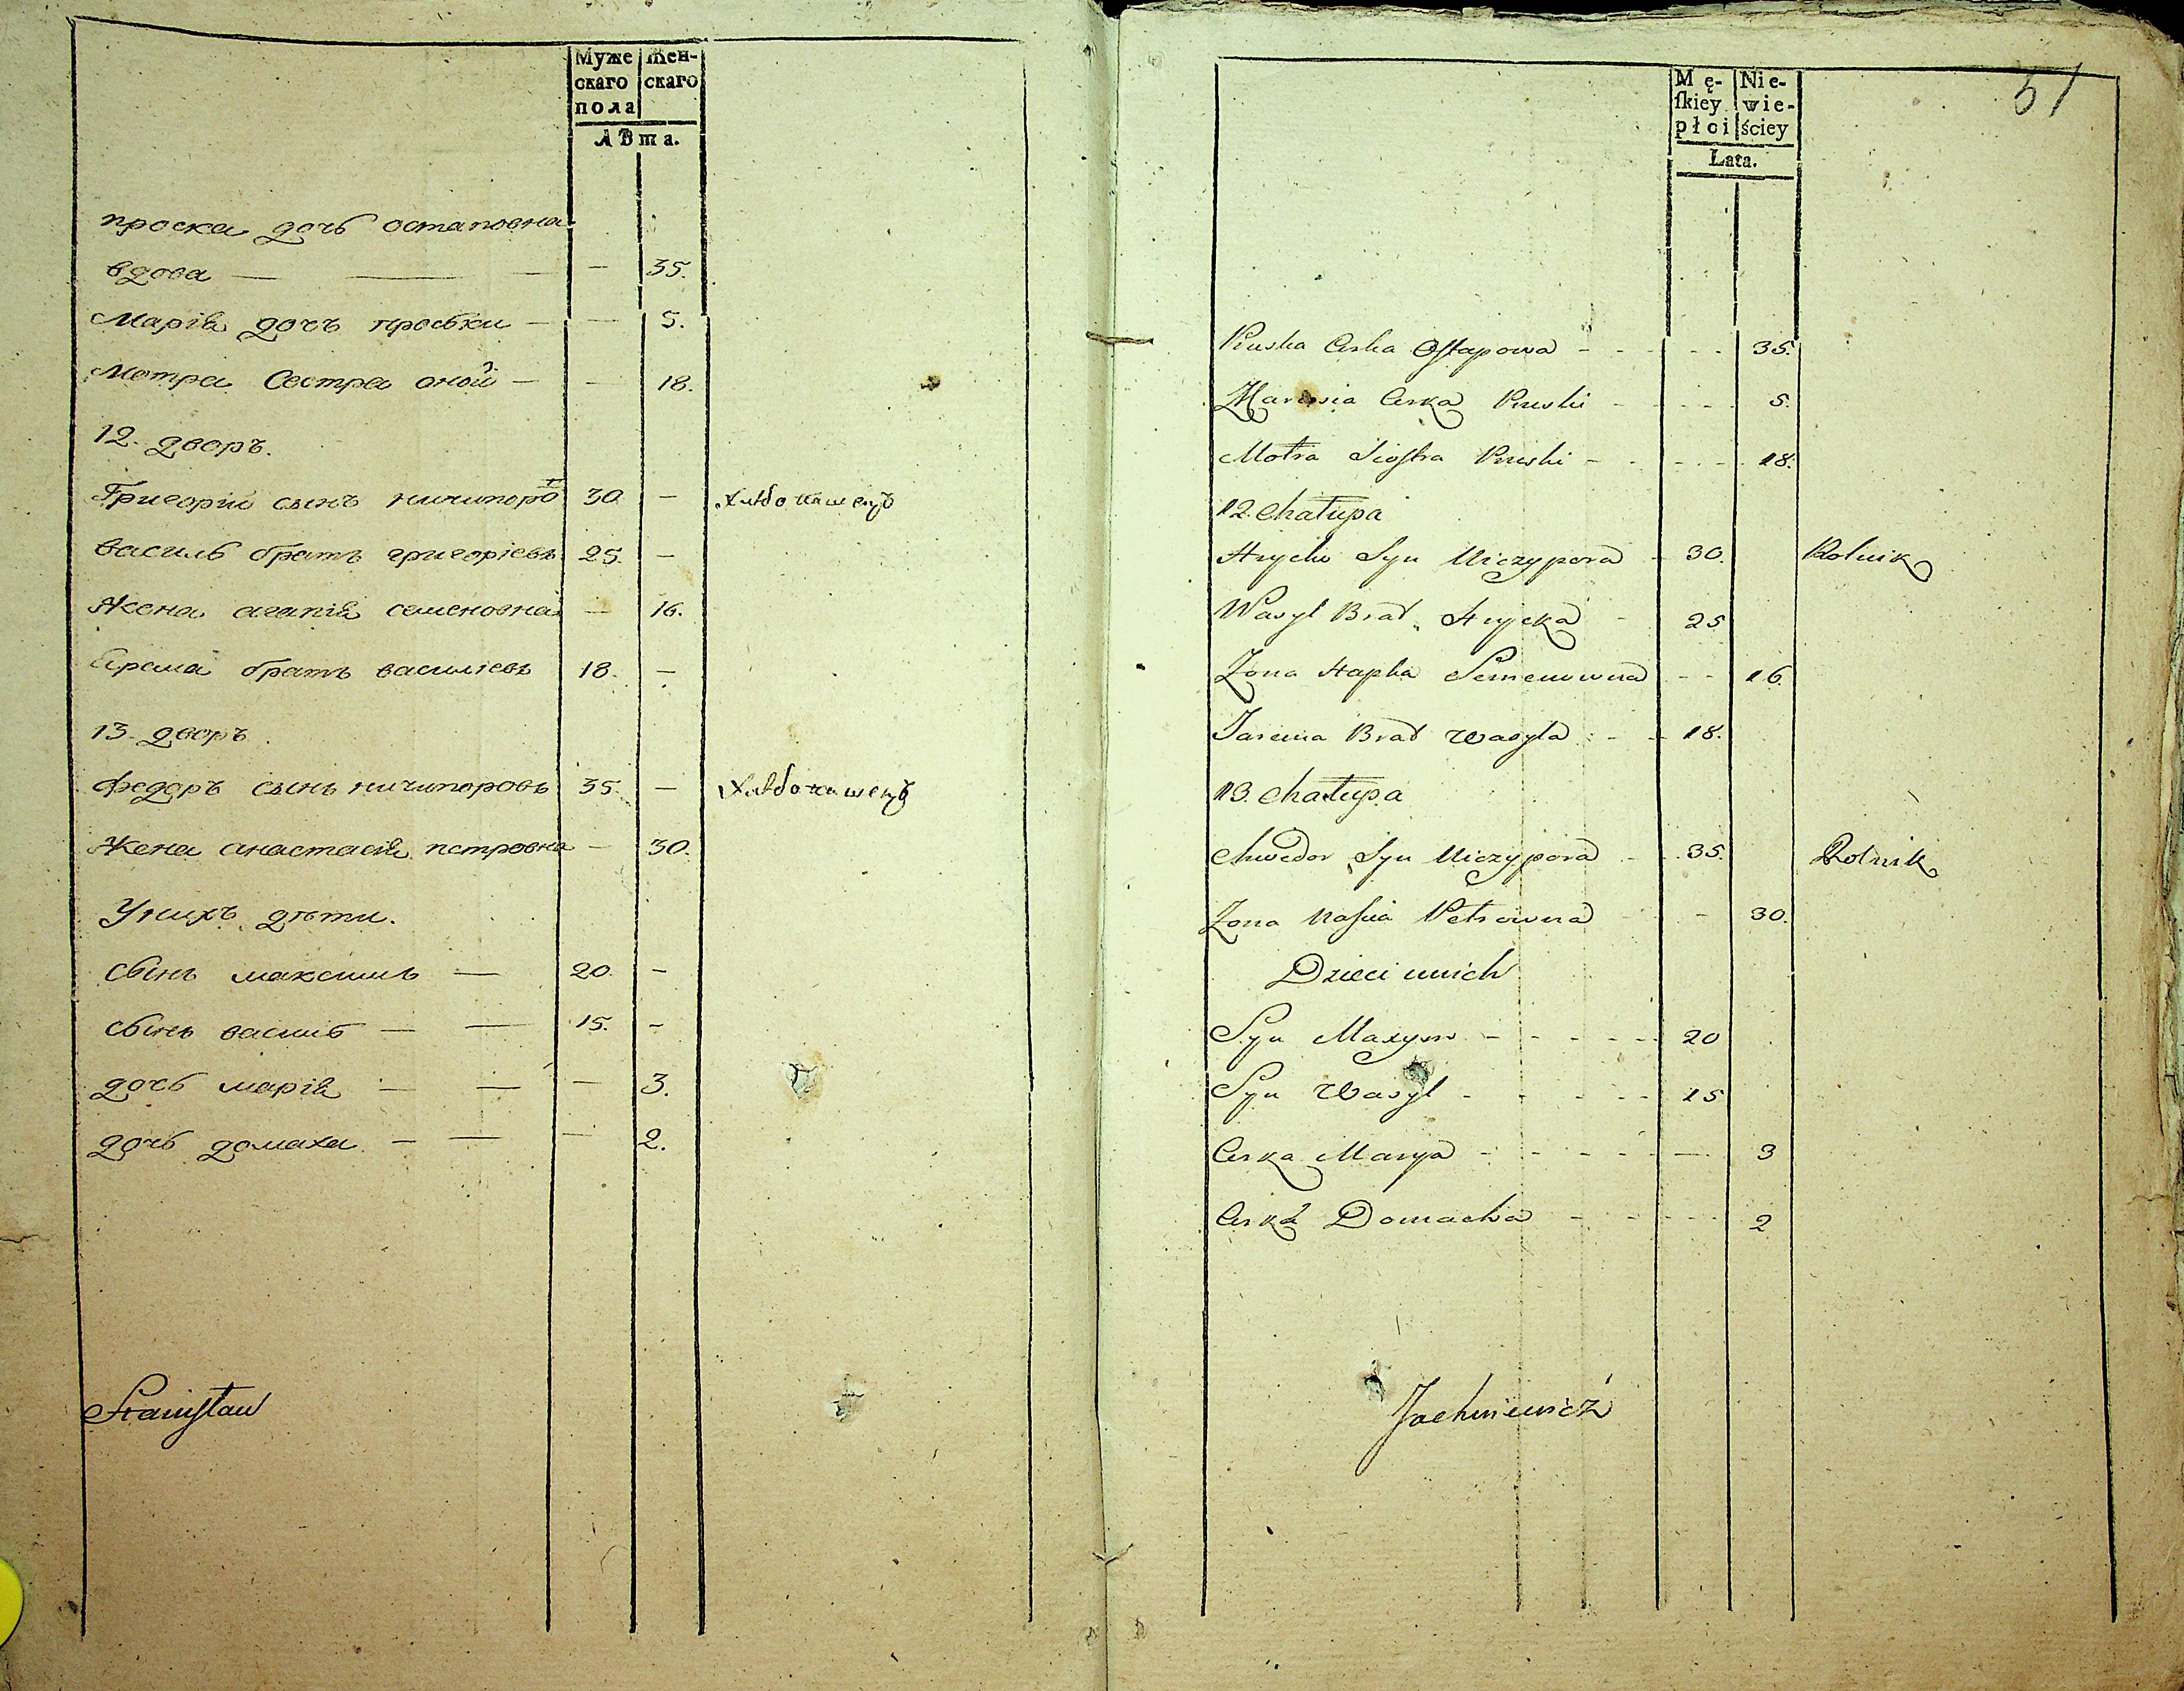 Муже
скаго
пола
Жен-
скаго
Лѣта.
проска дочь остаповна
вдова — — — — 35.
Марія дочъ проськи — — 5.
Мотра Сестра оной — — 18.
12. дворъ.
Григорій сынъ ничипоро 30. — хлѣбопашецъ
василь братъ григоріевъ 25. —
Жена агапія семеновна — 16.
Ярема братъ василіевъ 18. —
13. дворъ.
федоръ сынъ ничипоровъ 35. — хлѣбопашецъ
Жена анастасія петровна — 30.
Унихъ дѣти.
сынъ максимъ — 20. —
сынъ василь — — 15. —
дочь марія — — — 3.
дочь домаха — — — 2.
Stanisław
51
Mę-
skiey
płci
Nie-
wie-
ściey
Lata.
Pruska Corka Ostapowa - - - - 35.
Marysia Corka Pruski - - - - 5.
Motra Siostra Pruski - - - - 18.
12. chałupa
Hrycko Syn Niczypora - 30. Rolnik
Wasyl Brat Hrycka - 25
Zona Hapka Semenowna - - 16.
Jarema Brat Wasyla - - 18.
13. chałupa
Chwedor Syn Niczypora - 35. Rolnik
Zona Nascia Petrowna - - 30.
Dzieci unich
Syn Maxym - - - - - 20
Syn Wasyl - - - - - 15
Corka Marya - - - - - — 3
Corka Domacha - - - - 2
Jachniewicz